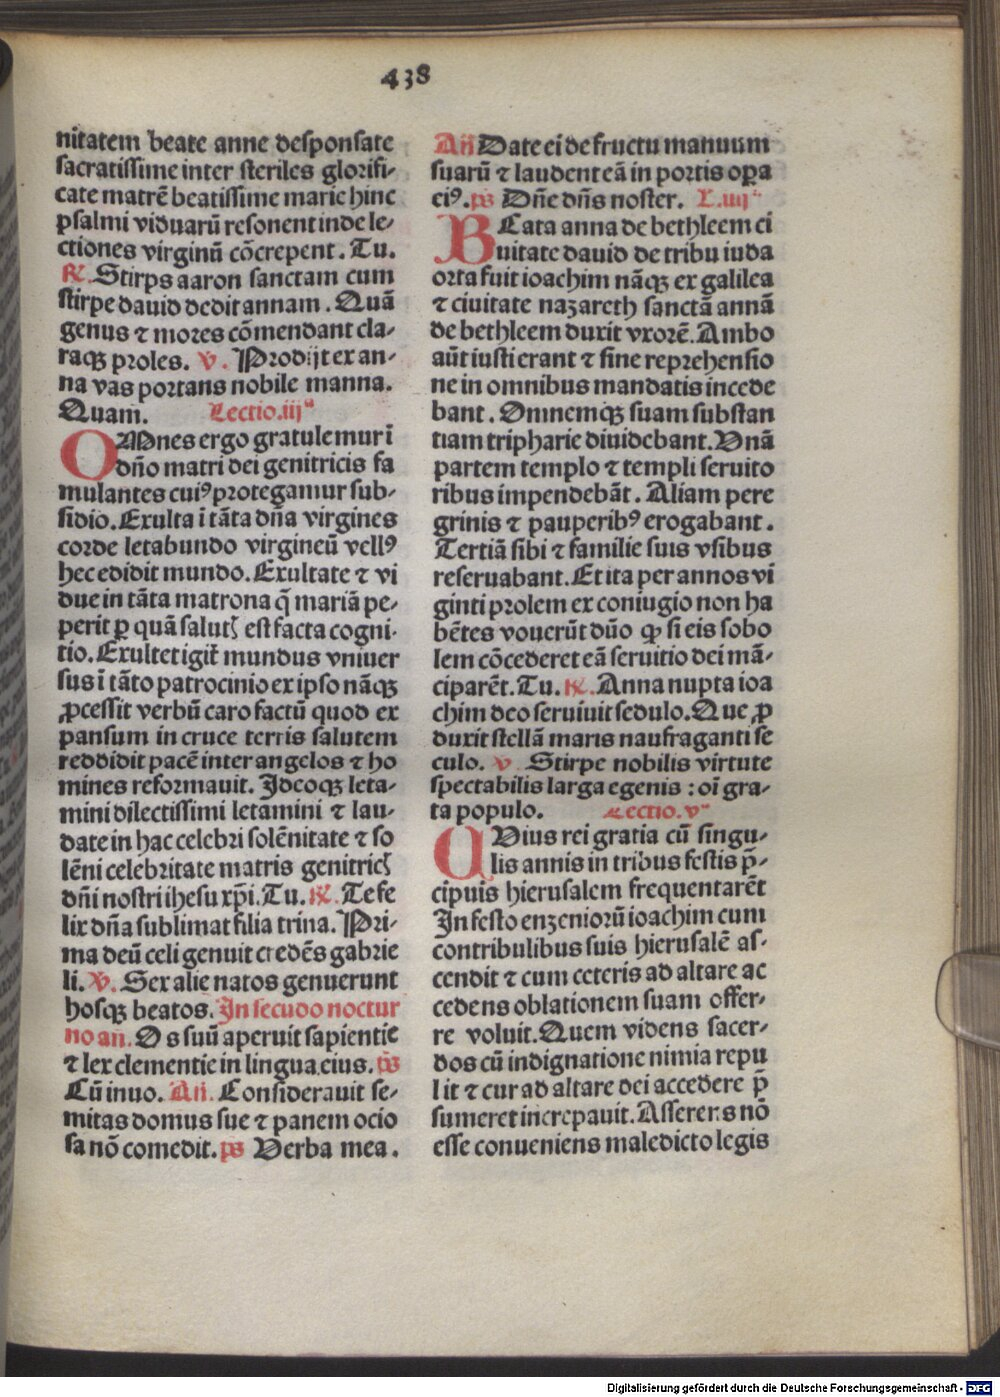 438
nitatem beate anne desponsate
sacratissime inter steriles glorifi-
cate matrē beatissime marie hinc
psalmi viduarū resonent inde le-
ctiones virginū cōcrepent. Tu.
℟. Stirps aaron sanctam cum
stirpe dauid dedit annam. Quā
genus ⁊ mores cōmendant cla-
raqꝫ proles. v. Prodijt ex an-
na vas portans nobile manna.
Quam. Lectio.iijᵃ
OMnes ergo gratulemur ī
dn̄o matri dei genitricis fa
mulantes cuiꝰ protegamur sub-
sidio. Exulta ī tāta dn̄a virgines
corde letabundo virgineū vellꝰ
hec edidit mundo. Exultate ⁊ vi
due in tāta matrona q̄ mariā pe-
perit ꝑ quā salutꝭ est facta cogni-
tio. Exultet igit̄ mundus vniuer
sus ī tāto patrocinio ex ipso nāqꝫ
ꝓcessit verbū caro factū quod ex
pansum in cruce terris salutem
reddidit pacē inter angelos ⁊ ho
mines reformauit. Ideoqꝫ leta-
mini dilectissimi letamini ⁊ lau-
date in hac celebri solēnitate ⁊ so
lēni celebritate matris genitricꝭ
dn̄i nostri ihesu xp̄i. Tu. ℟. Te fe
lix dn̄a sublimat filia trina. Pri-
ma deū celi genuit credēs gabrie
li. V. Sex alie natos genuerunt
hosqꝫ beatos. In secūdo noctur
no an̄. Os suū aperuit sapientie
⁊ lex clementie in lingua eius. ps̄
Cū inuo. An̄. Considerauit se-
mitas domus sue ⁊ panem ocio
sa nō comedit. ps̄ Verba mea.
An̄ Date ei de fructu manuum
suarū ⁊ laudent eā in portis oꝑa
eiꝰ. ps̄ Dn̄e dn̄s noster. L.iiijᵃ
BEata anna de bethleem ci
uitate dauid de tribu iuda
orta fuit ioachim nāqꝫ ex galilea
⁊ ciuitate nazareth sanctā annā
de bethleem duxit vxorē. Ambo
aūt iusti erant ⁊ sine reprehensio
ne in omnibus mandatis incede
bant. Omnemqꝫ suam substan
tiam tripharie diuidebant. Vnā
partem templo ⁊ templi seruito
ribus impendebāt. Aliam pere
grinis ⁊ pauperibꝰ erogabant.
Tertiā sibi ⁊ familie suis vsibus
reseruabant. Et ita per annos vi
ginti prolem ex coniugio non ha
bētes vouerūt dūo ꝙ si eis sobo
lem cōcederet eā seruitio dei mā-
ciparēt. Tu. ℟. Anna nupta ioa
chim deo seruiuit sedulo. Que ꝓ
duxit stellā maris naufraganti se
culo. v Stirpe nobilis virtute
spectabilis larga egenis : oī gra-
ta populo. Lectio.vᵃ
QVius rei gratia cū singu-
lis annis in tribus festis p̄-
cipuis hierusalem frequentarēt
In festo enzeniorū ioachim cum
contribulibus suis hierusalē as-
cendit ⁊ cum ceteris ad altare ac
cedens oblationem suam offer-
re voluit. Quem videns sacer-
dos cū indignatione nimia repu
lit ⁊ cur ad altare dei accedere p̄
sumeret increpauit. Asserens nō
esse conueniens maledicto legis
Digitalisierung gefördert durch die Deutsche Forschungsgemeinschaft - DFG